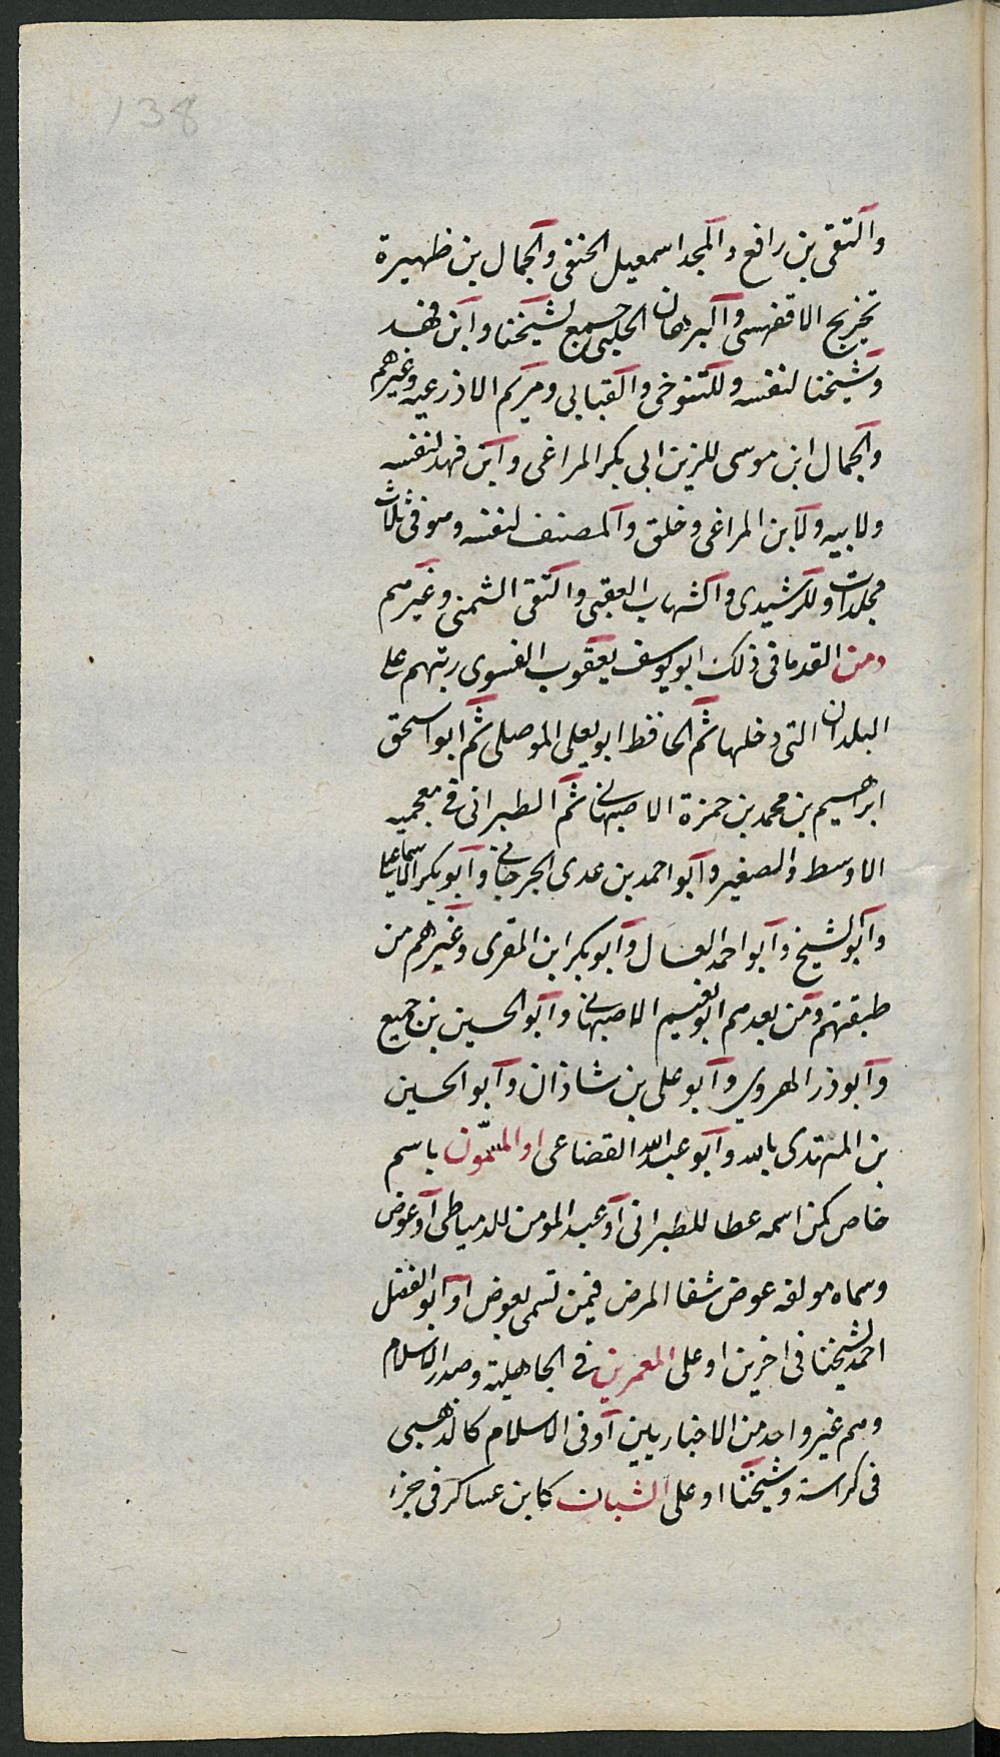 138
والتقى بن رافع والمجد اسمعيل الحنفى والجمال بن ظهيرة
تخريج الاقفهسى والبرهان الحلبى جمع لشيخنا وابن فهد
وشيخنا لنفسه وللتنوخى والقبابى ومريم الاذرعيه وغيرهم
والجمال ابن موسى للزين ابى بكر المراغى وابن فهد لنفسه
ولابيه ولابن المراغى وخلق والمصنف لنفسه وهو فى ثلاث
مجلدات وللرشيدى والشهاب العقبى والتقى الشمنى وغيرهم
ومن القدما فى ذلك ابو يوسف يعقوب الفسوى رتبهم على
البلدان التى دخلها ثم الحافظ ابو يعلى الموصلى ثم ابو اسحق
ابراهيم بن محمد بن حمزة الاصبهانى ثم الطبرانى فى معجميه
الاوسط والصغير وابو احمد بن عدى الجرجانى وابو بكر الاسماعيلى
وابو الشيخ وابو احمد العسال وابو بكر ابن المقرى وغيرهم من
طبقتهم ومن بعدهم ابو نعيم الاصبهانى وابو الحسين بن جميع
وابو ذر الهروى وابو على بن شاذان وابو الحسين
بن المهتدى بالله وابو عبد الله القضاعى او المسمّون باسم
خاص كمن اسمه عطا للطبرانى او عبد المومن للدمياطى او عوض
وسماه مولفه عوض شفا المرض فيمن تسمى بعوض او ابو الفضل
احمد لشيخنا فى اخرين او على المعمرين فى الجاهلية وصدر الاسلام
وهم غير واحد من الاخباريين او فى الاسلام كالذهبى
فى كراسة وشيخنا او على الشبان كابن عساكر فى جزء